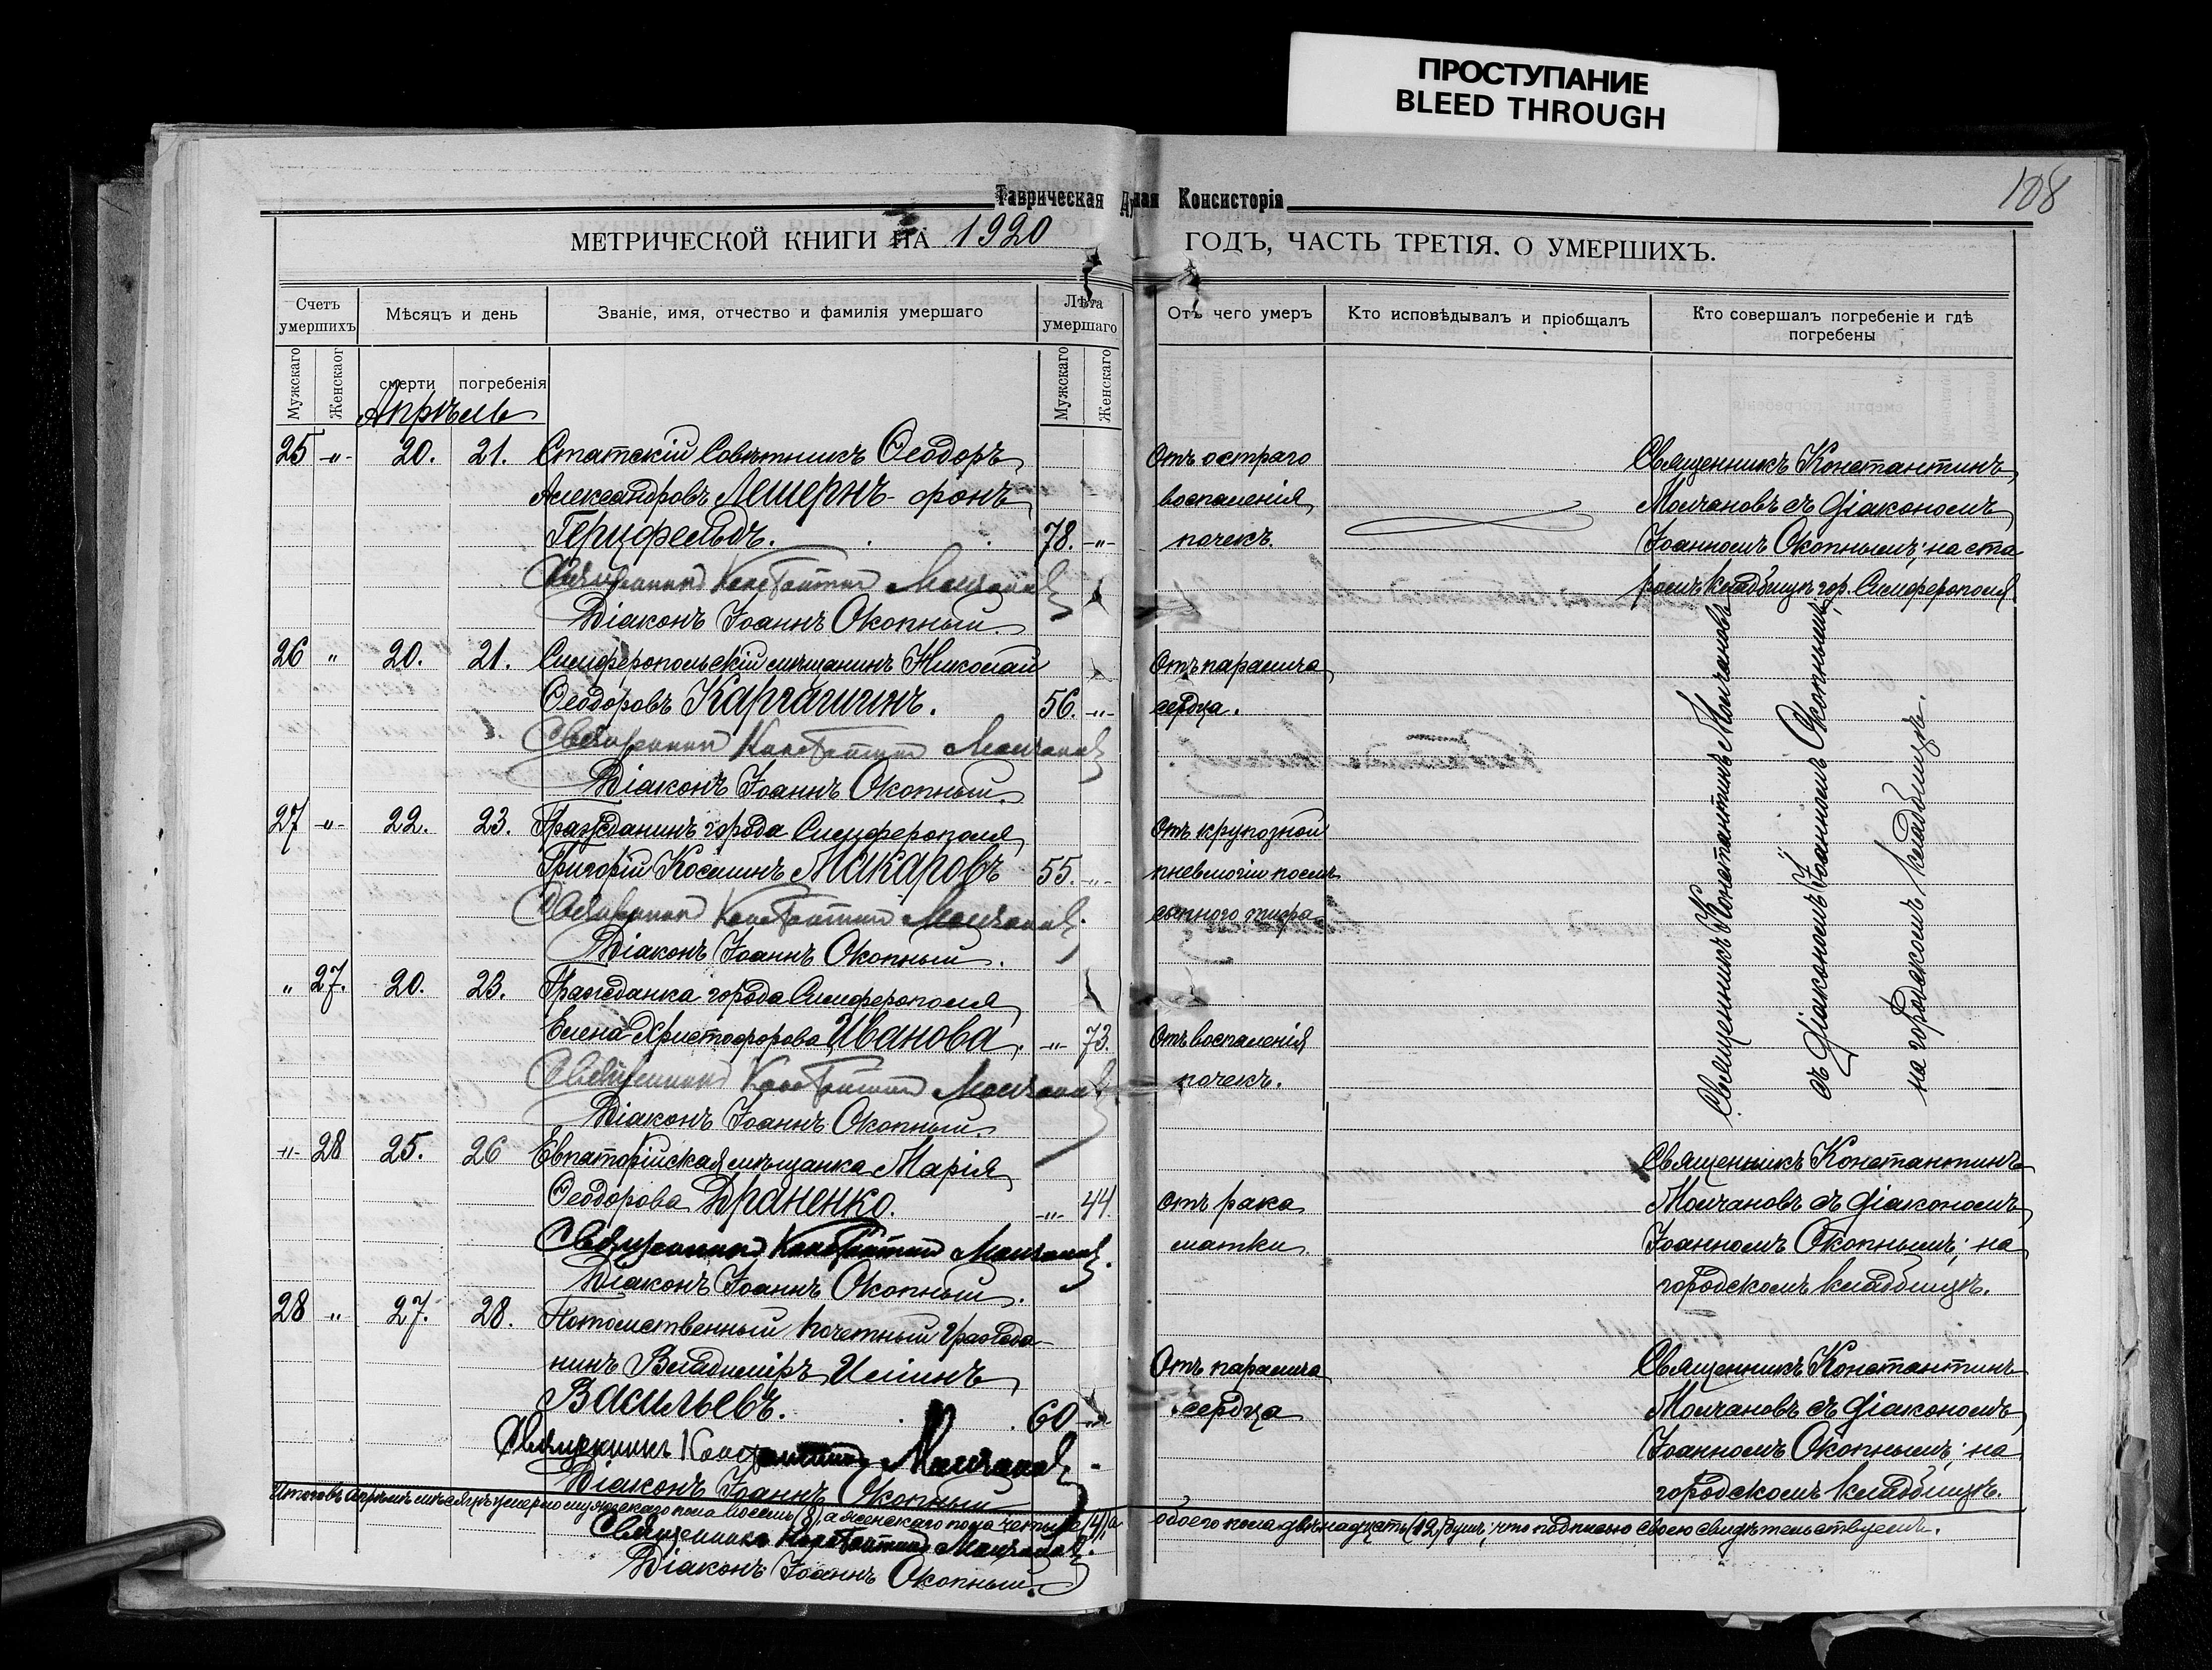 ПРОСТУПАНИЕ
BLEED THROUGH
108
Таврическая Ду ная Консисторія
МЕТРИЧЕСКОЙ КНИГИ НА 1920 ГОДЪ, ЧАСТЬ ТРЕТІЯ, О УМЕРШИХЪ.
Счетъ умершихъ
Мѣсяцъ и день
Званіе, имя, отчество и фамилія умершаго
Лѣта умершаго
Отъ чего умеръ
Кто исповѣдывалъ и пріобщалъ
Кто совершалъ погребеніе и гдѣ погребены
Мужскаго
Женскаог
смерти
погребенія
Мужскаго
Женскаго
Апрѣль
25 -"- 20. 21. Статскій Совѣтникъ Ѳеодоръ Отъ остраго Священникъ Константинъ
Александровъ Лешернъ-фонъ воспаленія Молчановъ съ діакономъ
Герцфельдъ. 78. -"- почекъ. Іоанномъ Окопнымъ; на ста
Священникъ Константинъ Молчановъ ромъ кладбищѣ гор. Симферополя
Діаконъ Іоаннъ Окопный.
26 " 20. 21. Симферопольскій мѣщанинъ Николай Отъ паралича
Ѳеодоровъ Каргашинъ. 56. -"- сердца.
Священникъ Константинъ Молчановъ
Діаконъ Іоаннъ Окопный.
27 -"- 22. 23. Гражданинъ города Симферополя Отъ крупозной
Григорій Косминъ Макаровъ 55. -"- пневмоніи послѣ
Священникъ Константинъ Молчановъ. сыпного тифа
Діаконъ Іоаннъ Окопный.
" 27. 20. 23. Гражданка города Симферополя
Елена Христофорова Иванова. -"- 73. Отъ воспаленія
Священникъ Константинъ Молчановъ почекъ.
Діаконъ Іоаннъ Окопный.
Священникъ Константинъ Молчановъ
съ діакономъ Іоанномъ Окопнымъ
на городскомъ кладбищѣ.
-"- 28 25. 26 Евпаторійская мѣщанка Марія Священникъ Константинъ
Ѳеодорова Драненко. -"- 44. отъ рака Молчановъ съ діакономъ
Священникъ Константинъ Молчановъ. матки. Іоанномъ Окопнымъ; на
Діаконъ Іоаннъ Окопный. городскомъ кладбищѣ.
28 " 27. 28. Потомственный почетный гражда-
нинъ Владиміръ Ильинъ Отъ паралича Священникъ Константинъ
Васильевъ. 60 -"- сердца Молчановъ съ діакономъ
Священникъ Константинъ Молчановъ Іоанномъ Окопнымъ; на
Діаконъ Іоаннъ Окопный городскомъ кладбищѣ.
Итого въ Апрѣлѣ мѣсяцѣ умерло мужескаго пола восемь (8), а женскаго пола четыре (4), а обоего пола двѣнадцать (12) душъ; что подписью своею свидѣтельствуемъ.
Священникъ Константинъ Молчановъ.
Діаконъ Іоаннъ Окопный.